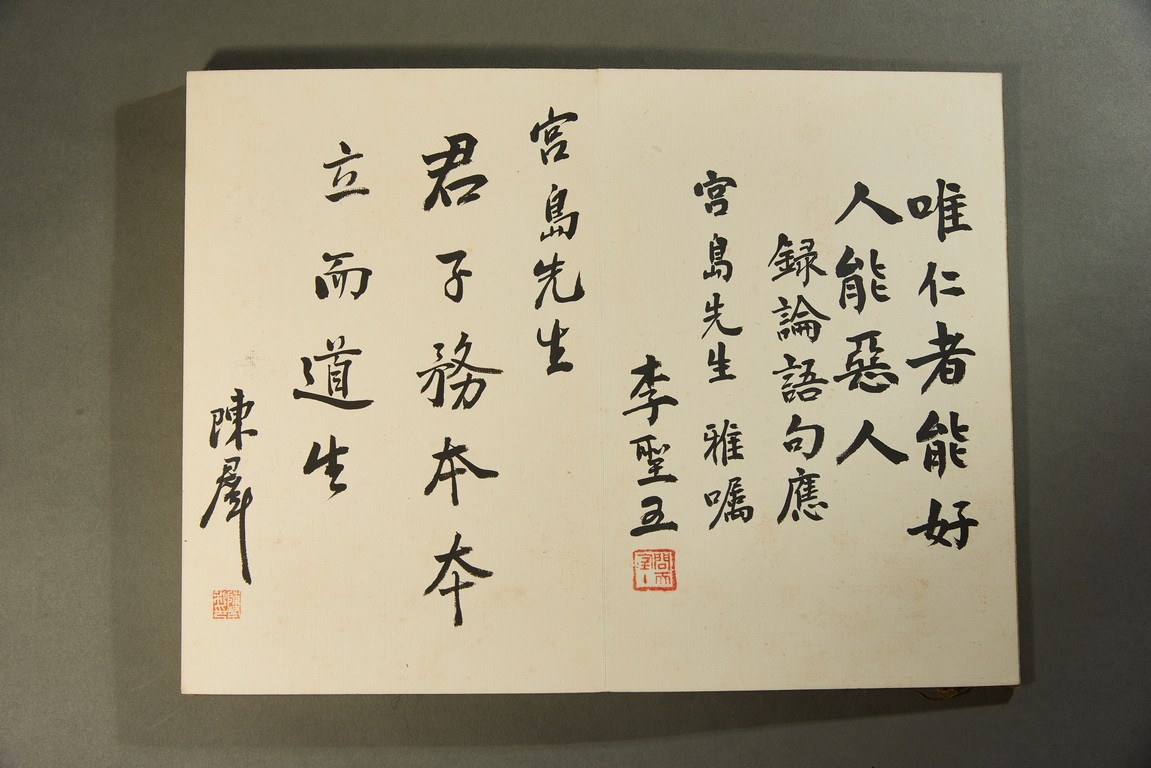 唯仁者能好
人能惡人
録論語句應
宮島先生 雅嘱
李聖五
宮島先生
君子務本本
立而道生
陳羣